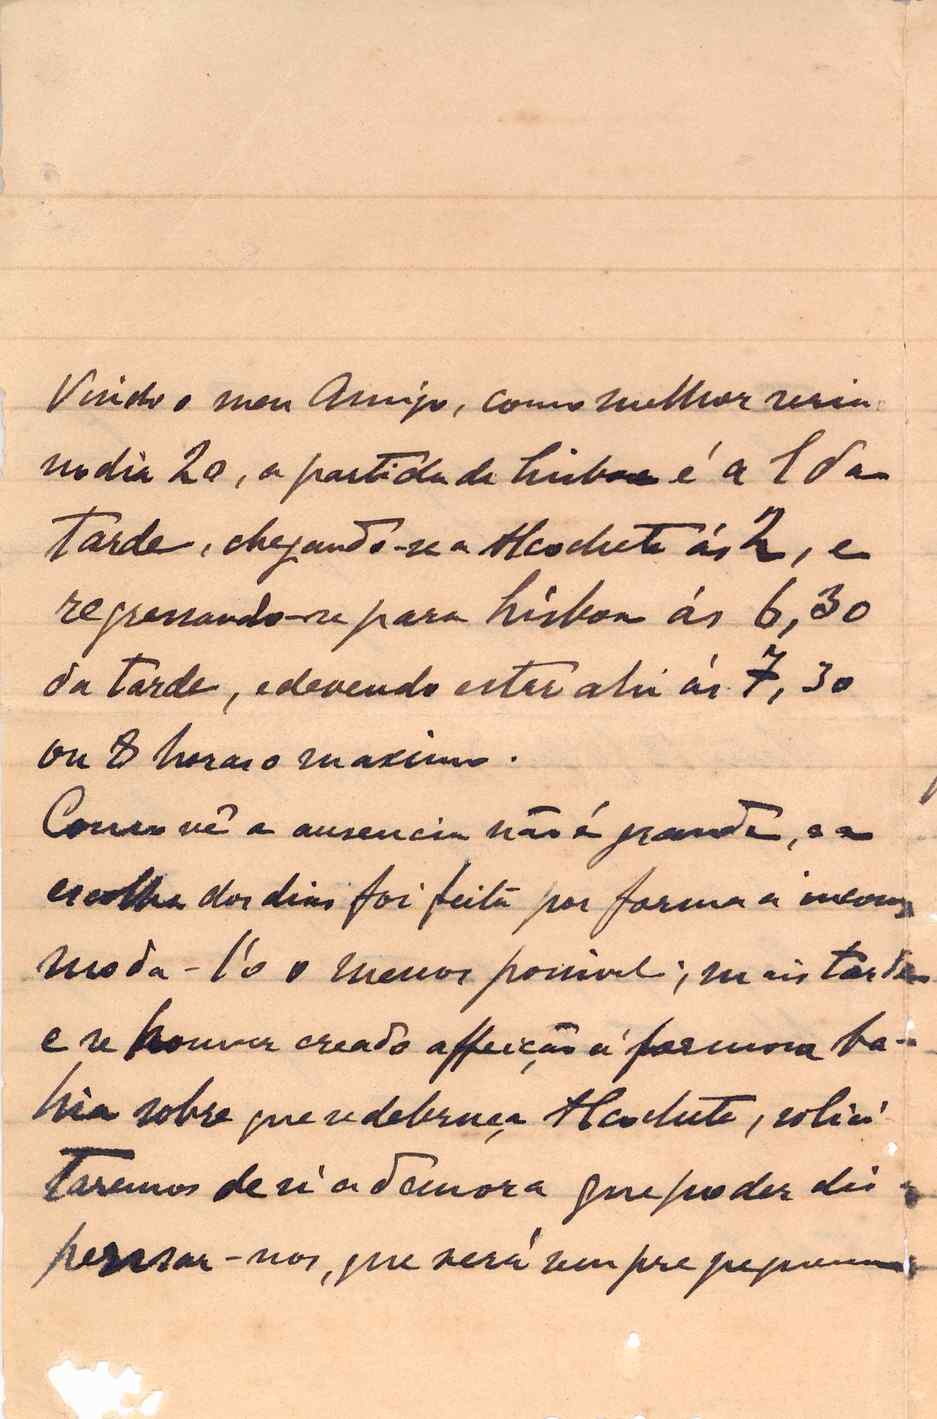 Vindo o meu Amigo, como melhor seria
no dia 20, a partida de Lisboa é á 1 da
tarde, chegando-se a Alcochete ás 2, e
regressando-se para Lisboa ás 6,30
da tarde, e devendo estar ahi ás 7,30
ou 8 horas o maximo.
Como vê a ausencia não é grande, e a
escolha dos dias foi feita por forma a incom
moda-l'o o menos possivel; mais tarde
e se houver creado affeição á formosa ba-
hia sobre que se debruça Alcochete, solici
taremos de si a demora que poder dis
pensar-nos, que será sempre pequena